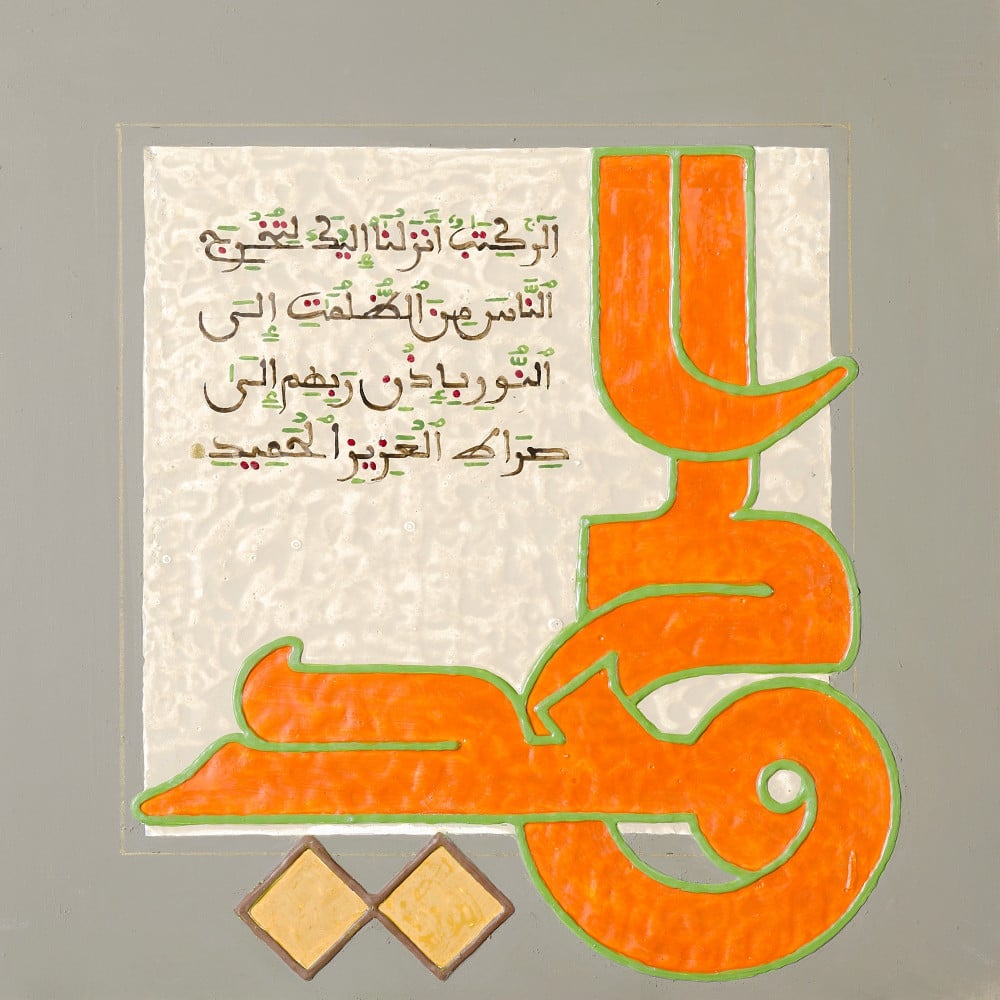 الٓر كِتَبٌ أَنزَلْنَا إِلَيْكَ لِتُخْرِجَ
ٱلنَّاسَ مِنَ ٱلظُّلُمَتِ إِلَى
ٱلنُّورِ بِإِذْنِ رَبِّهِمْ إِلَى
صِرَاطِ ٱلْعَزِيزِ ٱلْحَمِيدِ